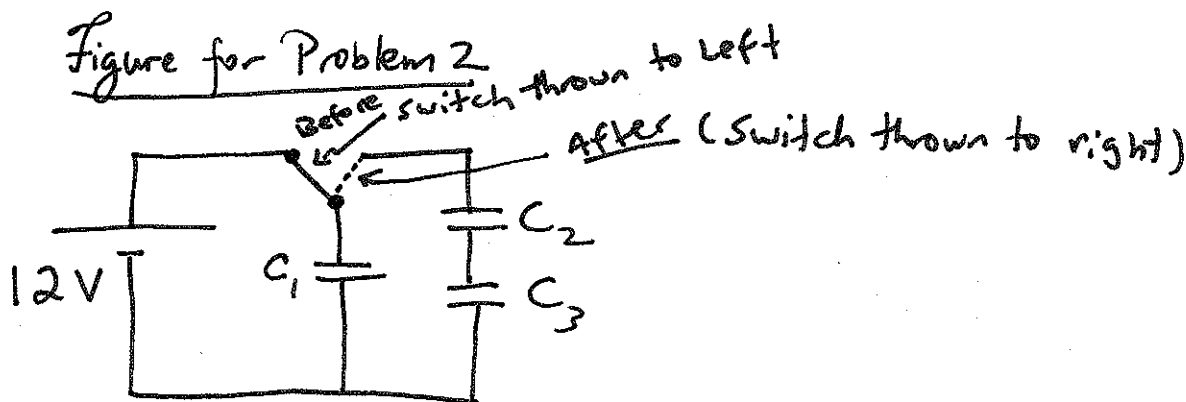 Figure for Problem 2
Before switch thrown to Left
After (Switch thrown to right)
C₂
C₁
12V
C₃